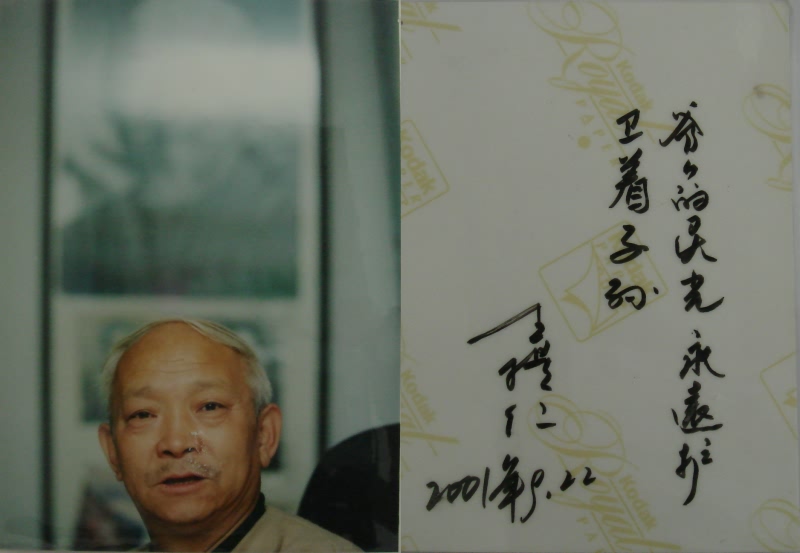 爷々的灵光永遠护
卫着子孙.
王 仁
2001年9.22
Kodak
Royal
PAPER
Kodak
PAPER
Kodak
Royal
Kodak